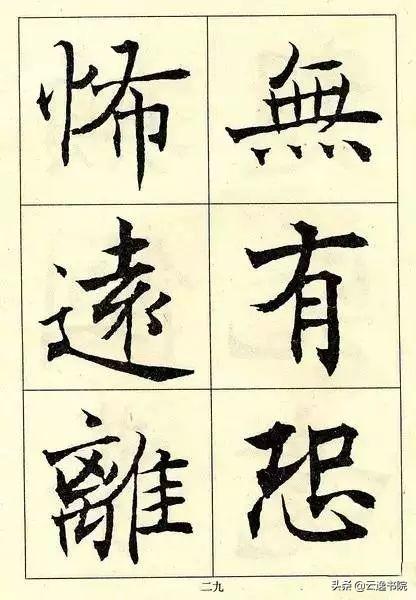 無有恐
怖遠離
二九
头条 @云逸书院